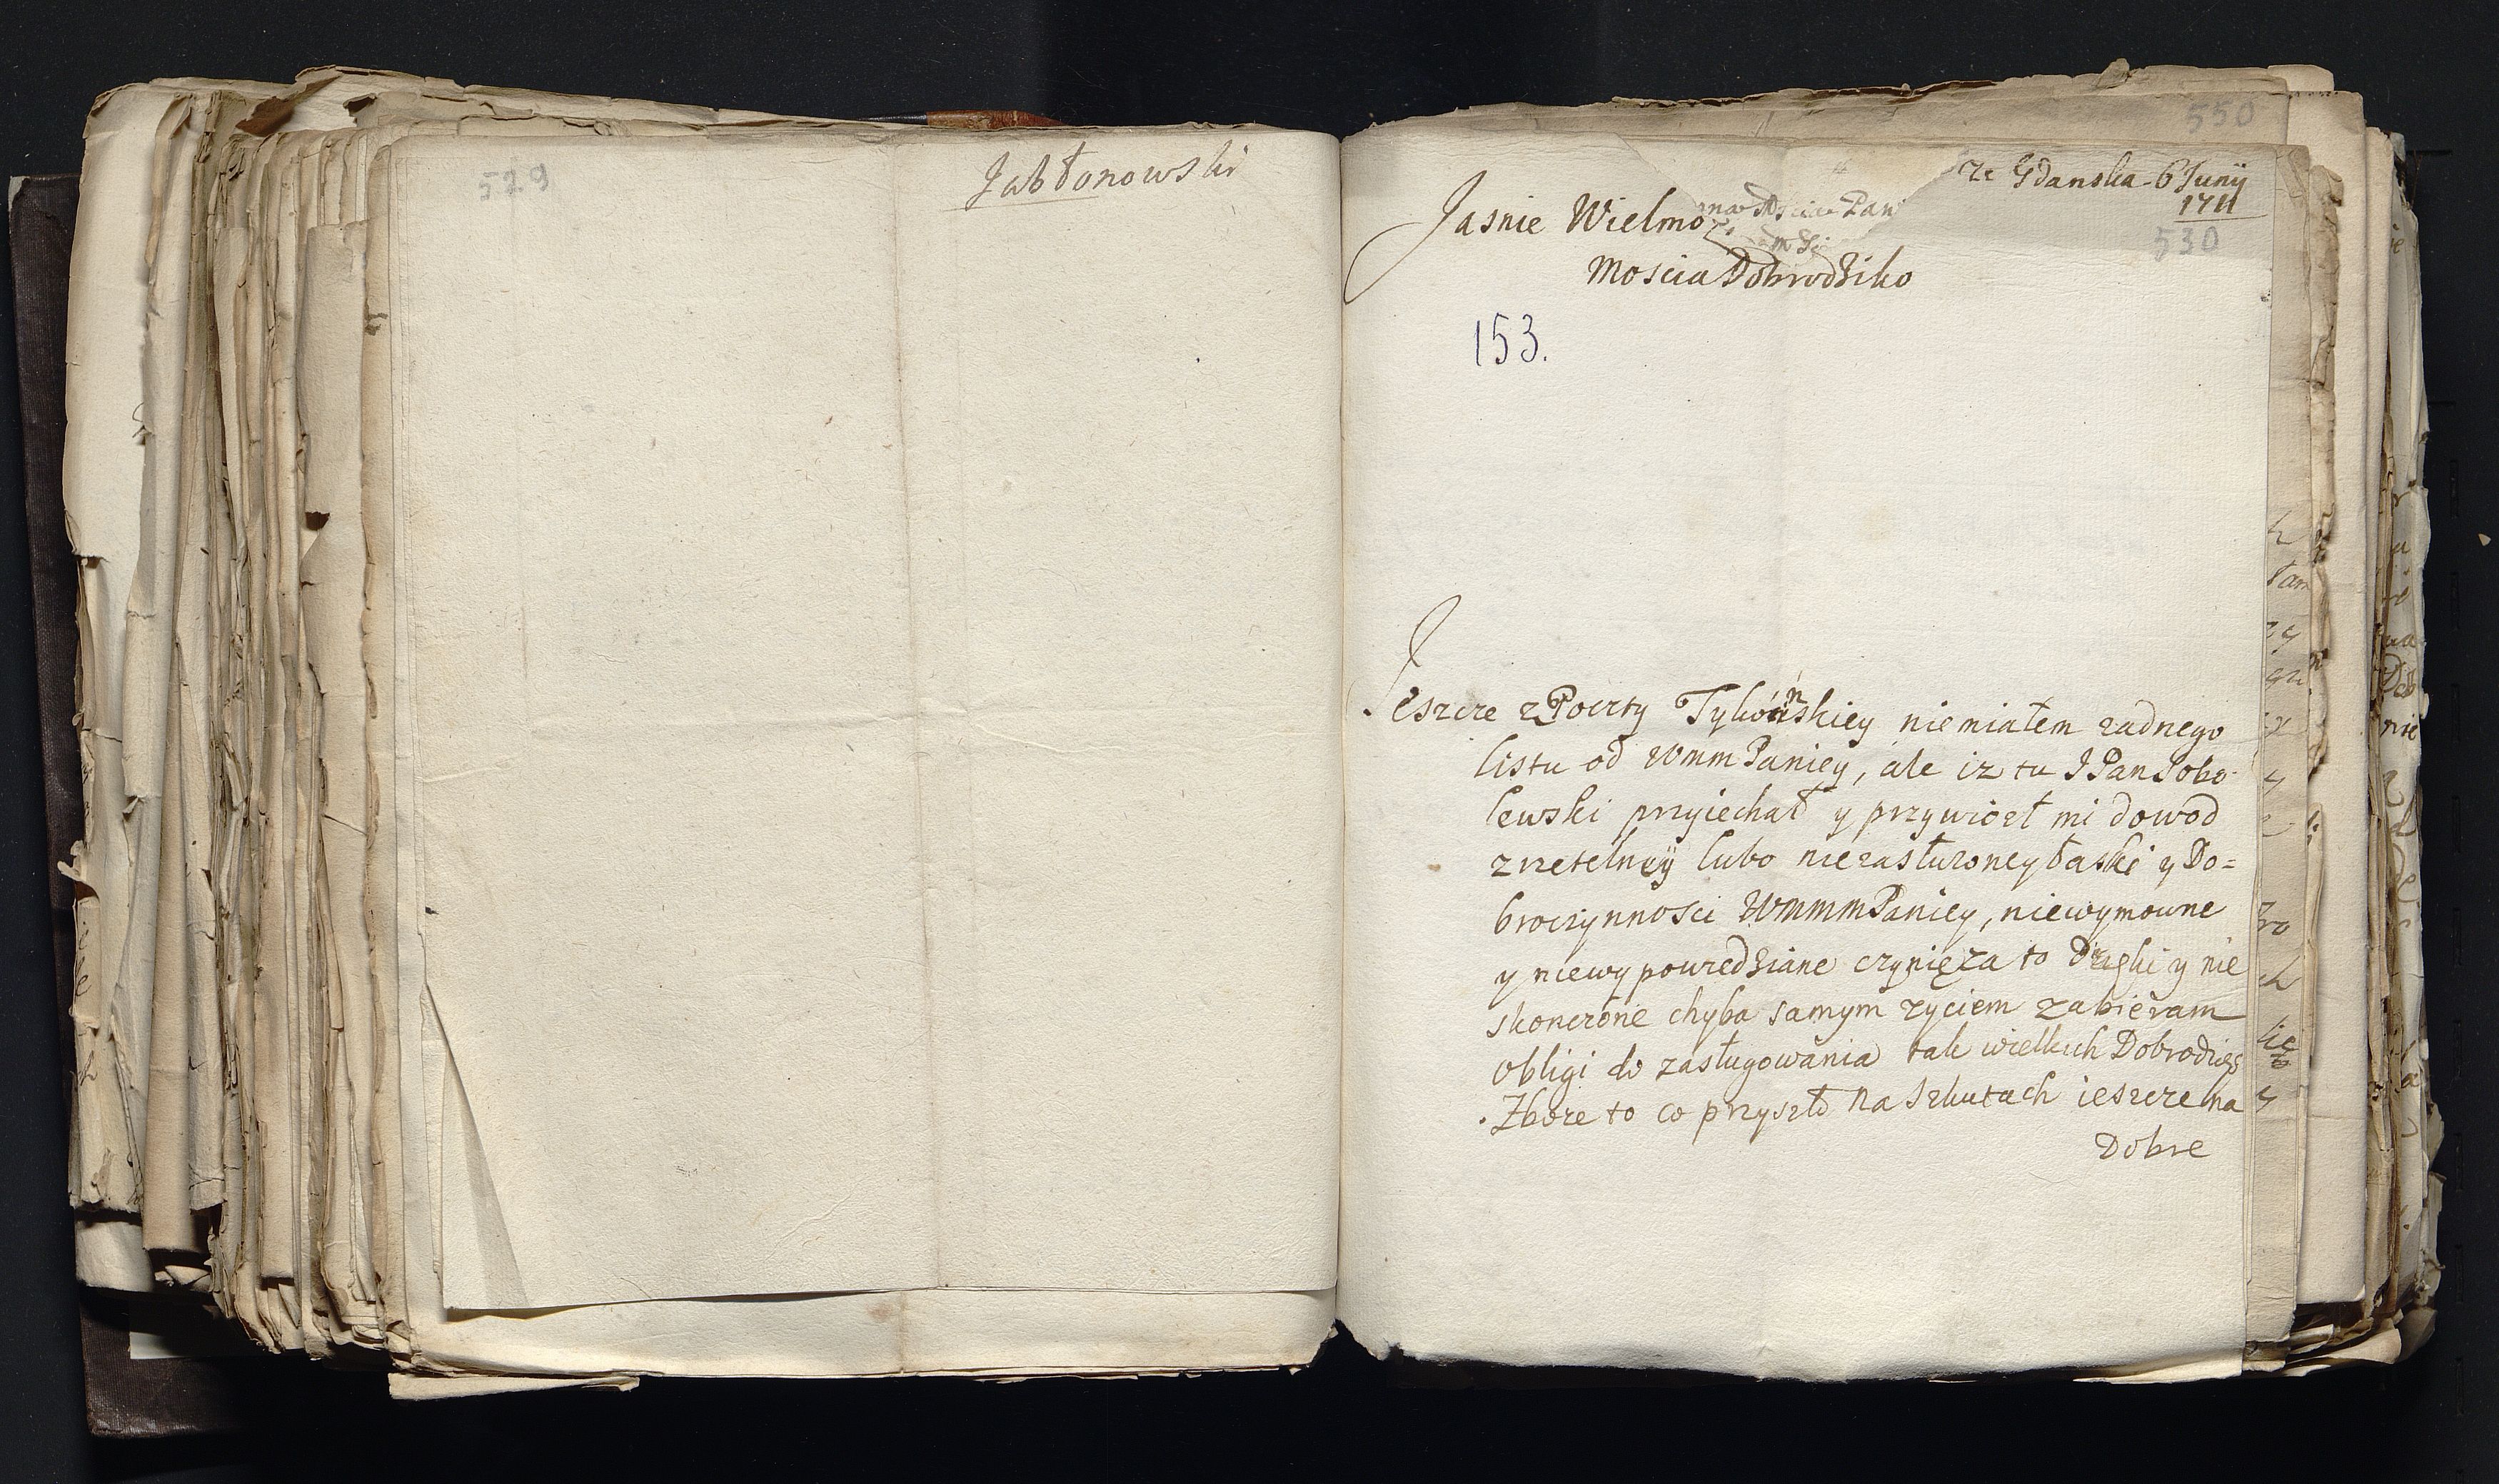 529
Jabłonowski
550
Ze Gdanska 6 Junij
1711
530
Jasnie Wielmoz. na Mscia Pan
Moscia Dobrodziko
153.
Jeszcze z Poczty Tykońskiey nie miałem zadnego
listu od WMM Paniey, ale iz tu J Pan Sobo-
lewski przyiechał y przywiozł mi dowod
zretelnyÿ lubo niezasłuzoney łaski y Do=
broczynnosci WMMM Paniey, niewymowne
y niewypowiedziane czynię za to Dzięki y nie
skonczone chyba samym zyciem zabieram
obligi do zasługowania tak wielkich Dobrodzies
Zboze to co przyszło na szkutach ieszcze na
Dobre